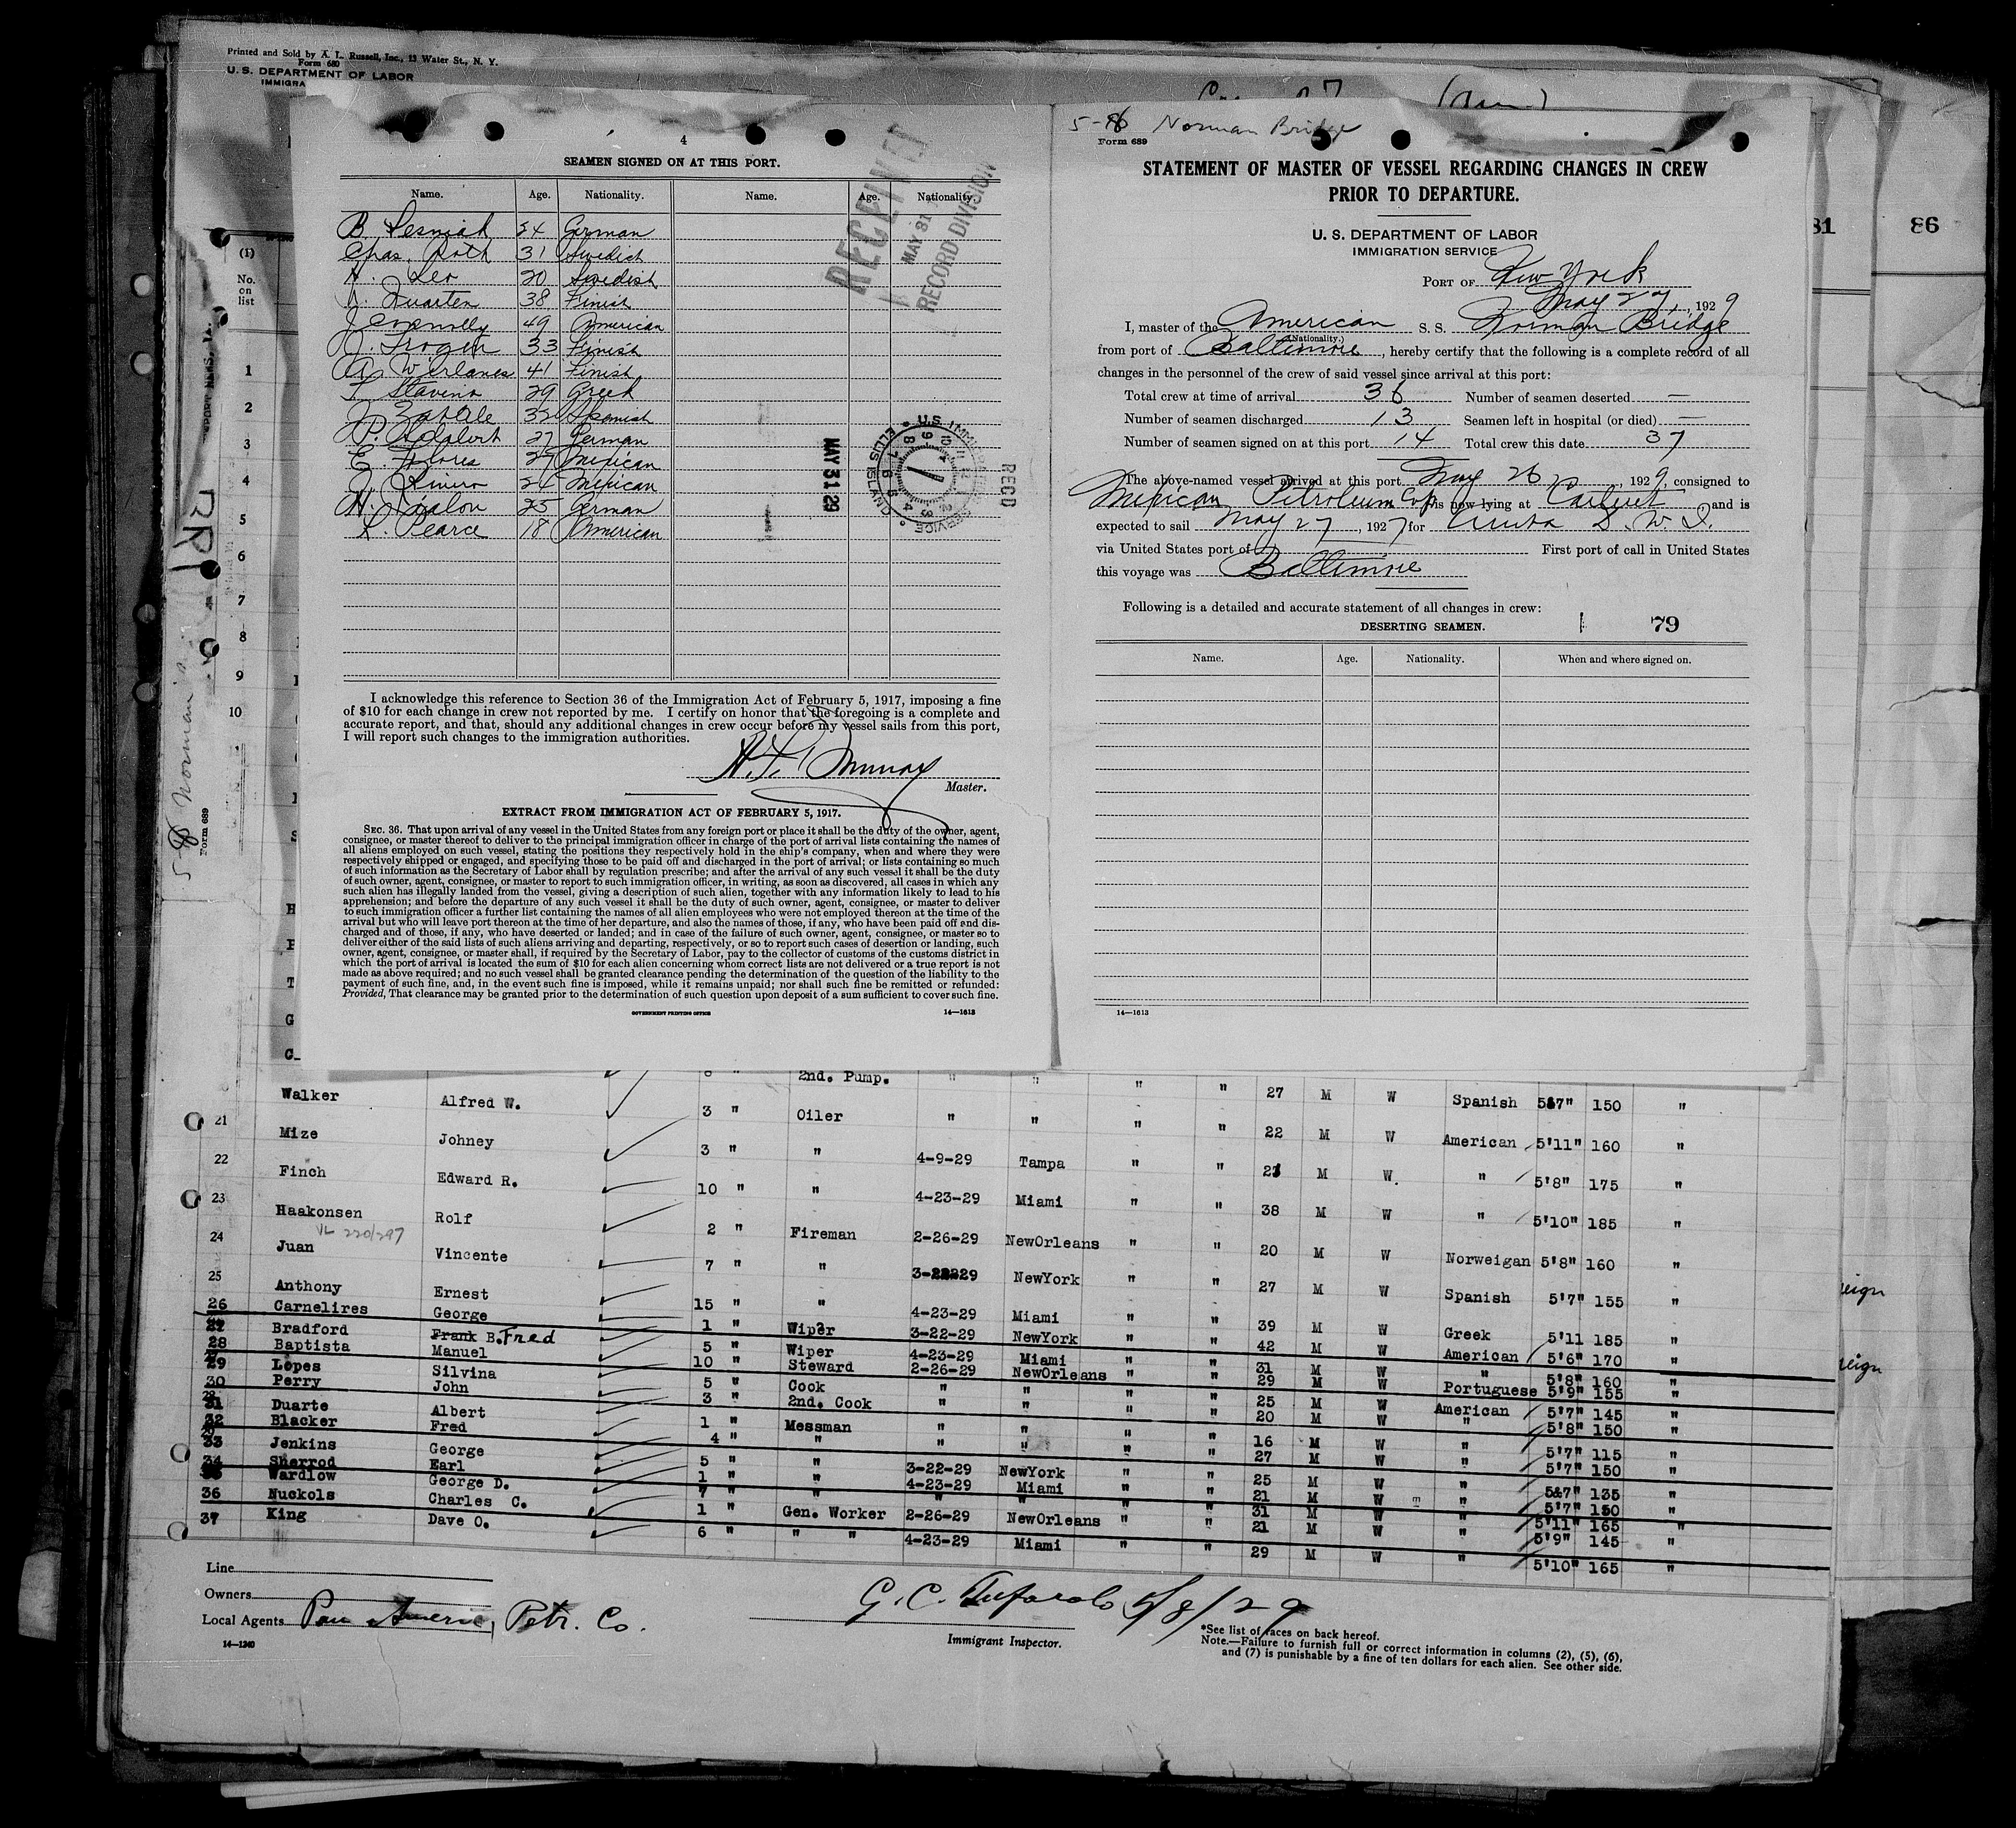 Printed and Sold by A. L. Russell, Inc., 13 Water St., N. Y.
Form 680
U. S. DEPARTMENT OF LABOR
IMMIGRA
4
SEAMEN SIGNED ON AT THIS PORT.
Name. Age. Nationality. Name. Age. Nationality.
24 German
Chas. Roth 31 Swedich
H. Leo 20 Swedish
38 Finish
J Connolly 49 American
33 Finish
41 Finish
29 Greek
32 Spanish
P. Adalbert 27 German
E. Flores 27 Mexican
J. Rivero 24 Mexican
25 German
Pearce 18 American
RECEIVED
MAY 31
RECORD DIVISION
MAY 31 29
RECD
I acknowledge this reference to Section 36 of the Immigration Act of February 5, 1917, imposing a fine
of $10 for each change in crew not reported by me. I certify on honor that the foregoing is a complete and
accurate report, and that, should any additional changes in crew occur before my vessel sails from this port,
I will report such changes to the immigration authorities.
Master.
EXTRACT FROM IMMIGRATION ACT OF FEBRUARY 5, 1917.
SEC. 36. That upon arrival of any vessel in the United States from any foreign port or place it shall be the duty of the owner, agent,
consignee, or master thereof to deliver to the principal immigration officer in charge of the port of arrival lists containing the names of
all aliens employed on such vessel, stating the positions they respectively hold in the ship's company, when and where they were
respectively shipped or engaged, and specifying those to be paid off and discharged in the port of arrival; or lists containing so much
of such information as the Secretary of Labor shall by regulation prescribe; and after the arrival of any such vessel it shall be the duty
of such owner, agent, consignee, or master to report to such immigration officer, in writing, as soon as discovered, all cases in which any
such alien has illegally landed from the vessel, giving a description of such alien, together with any information likely to lead to his
apprehension; and before the departure of any such vessel it shall be the duty of such owner, agent, consignee, or master to deliver
to such immigration officer a further list containing the names of all alien employees who were not employed thereon at the time of the
arrival but who will leave port thereon at the time of her departure, and also the names of those, if any, who have been paid off and dis-
charged and of those, if any, who have deserted or landed; and in case of the failure of such owner, agent, consignee, or master so to
deliver either of the said lists of such aliens arriving and departing, respectively, or so to report such cases of desertion or landing, such
owner, agent, consignee, or master shall, if required by the Secretary of Labor, pay to the collector of customs of the customs district in
which the port of arrival is located the sum of $10 for each alien concerning whom correct lists are not delivered or a true report is not
made as above required; and no such vessel shall be granted clearance pending the determination of the question of the liability to the
payment of such fine, and, in the event such fine is imposed, while it remains unpaid; nor shall such fine be remitted or refunded:
Provided, That clearance may be granted prior to the determination of such question upon deposit of a sum sufficient to cover such fine.
GOVERNMENT PRINTING OFFICE 14—1613
Norman Bridge
Form 689
STATEMENT OF MASTER OF VESSEL REGARDING CHANGES IN CREW
PRIOR TO DEPARTURE.
U. S. DEPARTMENT OF LABOR
IMMIGRATION SERVICE
PORT OF New York
May 27, 1929
I, master of the American S. S. Norman Bridge
(Nationality.)
from port of Baltimore, hereby certify that the following is a complete record of all
changes in the personnel of the crew of said vessel since arrival at this port:
Total crew at time of arrival 36 Number of seamen deserted —
Number of seamen discharged 13 Seamen left in hospital (or died) —
Number of seamen signed on at this port 14 Total crew this date 37
The above-named vessel arrived at this port May 26, 1929, consigned to
Mexican Petroleum Corp is now lying at Carteret and is
expected to sail May 27, 1927 for Aruba D. W. I.
via United States port of First port of call in United States
this voyage was Baltimore
Following is a detailed and accurate statement of all changes in crew:
DESERTING SEAMEN. 79
Name. Age. Nationality. When and where signed on.
14—1613
81
86
(1)
No.
on
list
1
2
3
4
5
6
7
8
9
10
Form 689
2nd. Pump. " " " " 27 M W Spanish 5'7" 150 "
21 Walker Alfred W. 3 " Oiler " " " " 22 M W American 5'11" 160 "
22 Mize Johney 3 " " 4-9-29 Tampa " " M W. " 5'8" 175 "
23 Finch Edward R. 10 " " 4-23-29 Miami " " 38 M W " 5'10" 185 "
24 Haakonsen Rolf 2 " Fireman 2-26-29 NewOrleans " " 20 M W Norweigan 5'8" 160 "
VL 220/297
25 Juan Vincente 7 " " NewYork " " 27 M W Spanish 5'7" 155 "
26 Anthony Ernest 15 " " 4-23-29 Miami " " 39 M W Greek 5'11 185 "
27 Carnelires George 1 " Wiper 3-22-29 NewYork " " 42 M W American 5'6" 170 "
28 Bradford Frank B. Fred 5 " Wiper 4-23-29 Miami " " 31 M W " 5'8" 160 "
29 Baptista Manuel 10 " Steward 2-26-29 NewOrleans " " 29 M W Portuguese 5'9" 155 "
30 Lopes Silvina 5 " Cook " " " " 25 M W American 5'7" 145 "
31 Perry John 3 " 2nd. Cook " " " " 20 M W " 5'8" 150 "
32 Duarte Albert 1 " Messman " " " " 16 M W " 5'7" 115 "
33 Blacker Fred 4 " " " " " " 27 M W " 5'7" 150 "
34 Jenkins George 5 " " 3-22-29 NewYork " " 25 M W " 5'7" 135 "
35 Sherrod Earl 1 " " 4-23-29 Miami " " 21 M W " 5'7" 150 "
Wardlow George D. 7 " " " " " " 31 M W " 5'11" 165 "
36 Nuckols Charles C. 1 " Gen. Worker 2-26-29 NewOrleans " " 21 M W " 5'9" 145 "
37 King Dave O. 6 " " " 4-23-29 Miami " " 29 M W " 5'10" 165 "
Line
Owners
Local Agents Pan Americ Petr. Co.
14—1240
Immigrant Inspector.
*See list of races on back hereof.
Note.—Failure to furnish full or correct information in columns (2), (5), (6),
and (7) is punishable by a fine of ten dollars for each alien. See other side.